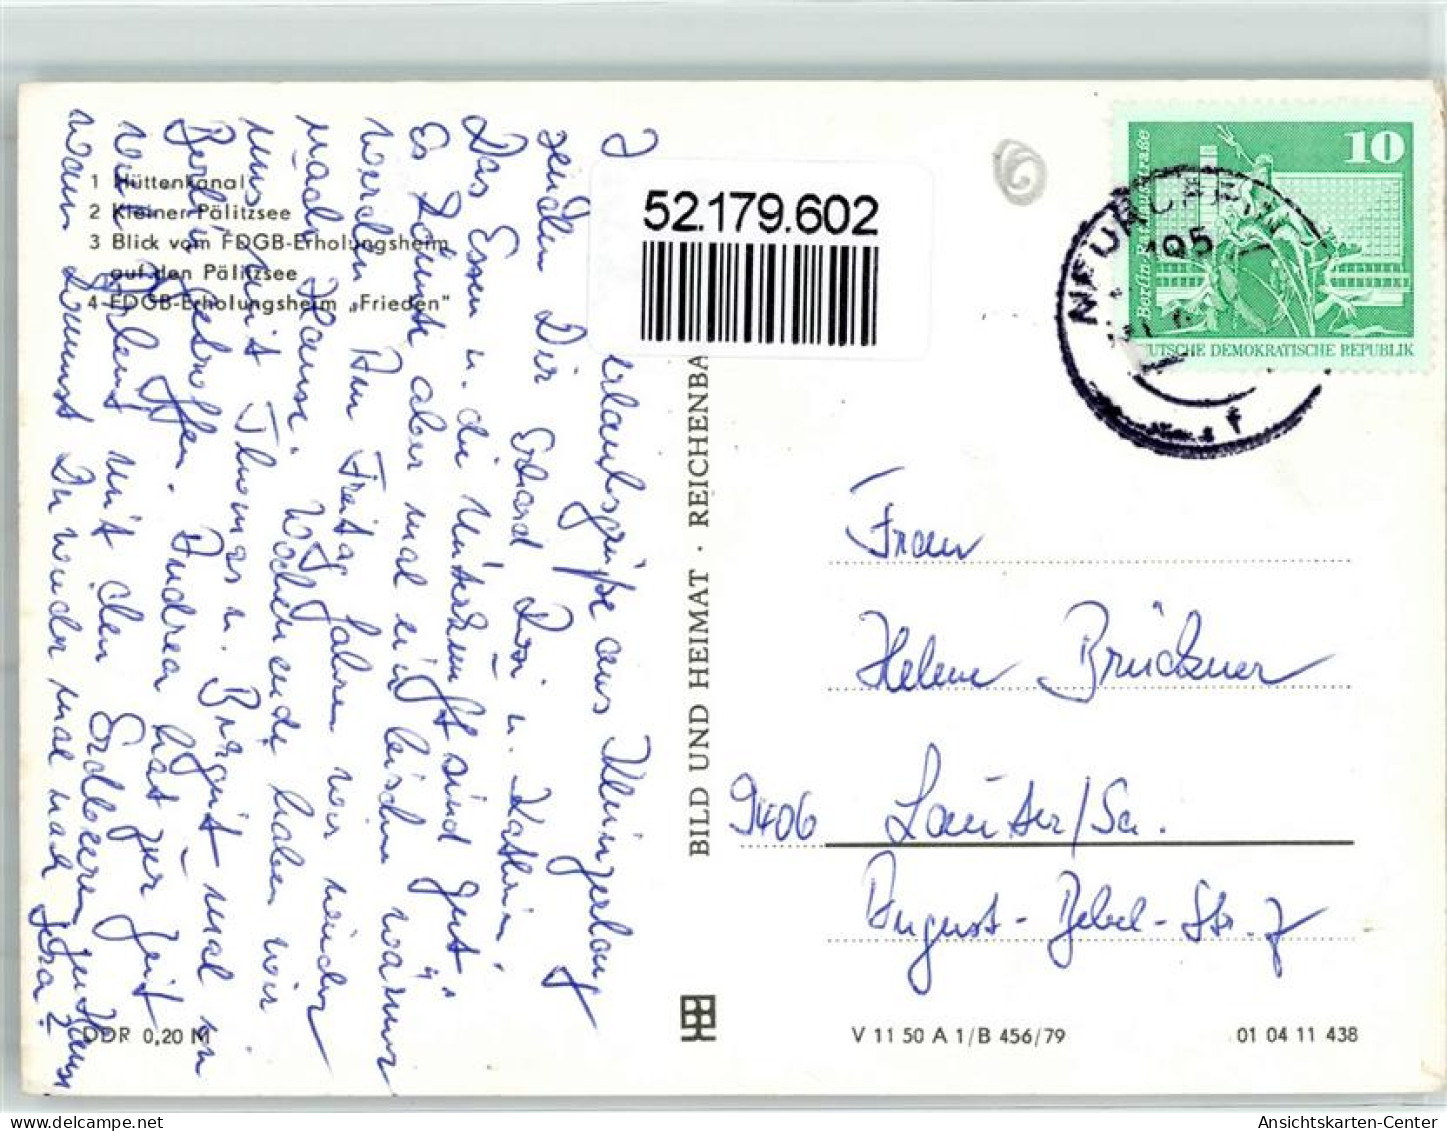 1 Hüttenkanal
2 Kleiner Pälitzsee
3 Blick vom FDGB-Erholungsheim
auf den Pälitzsee
4 FDGB-Erholungsheim „Frieden“
52.179.602
10
DEUTSCHE DEMOKRATISCHE REPUBLIK
195
BILD UND HEIMAT · REICHENBA
Urlaubsgrüße aus Kleinzerlang
senden Dir Erhard Rosi u. Kathrin.
Das Essen u. die Unterkunft sind gut.
Es könnte aber mal ein bischen wärmer
werden. Am Freitag fahren wir wieder
nach Hause. Wochenende haben wir
uns mit Thomas u. Birgit mal in
Berlin getroffen. Andrea hat zur Zeit
mit den zu Hause
Wann kommst Du wieder mal nach Jena?
Frau
Helene Brückner
9406 Lauter/Sa.
August-Bebel-Str. 7
DDR 0,20 M
V 11 50 A 1/B 456/79
01 04 11 438
Ansichtskarten-Center